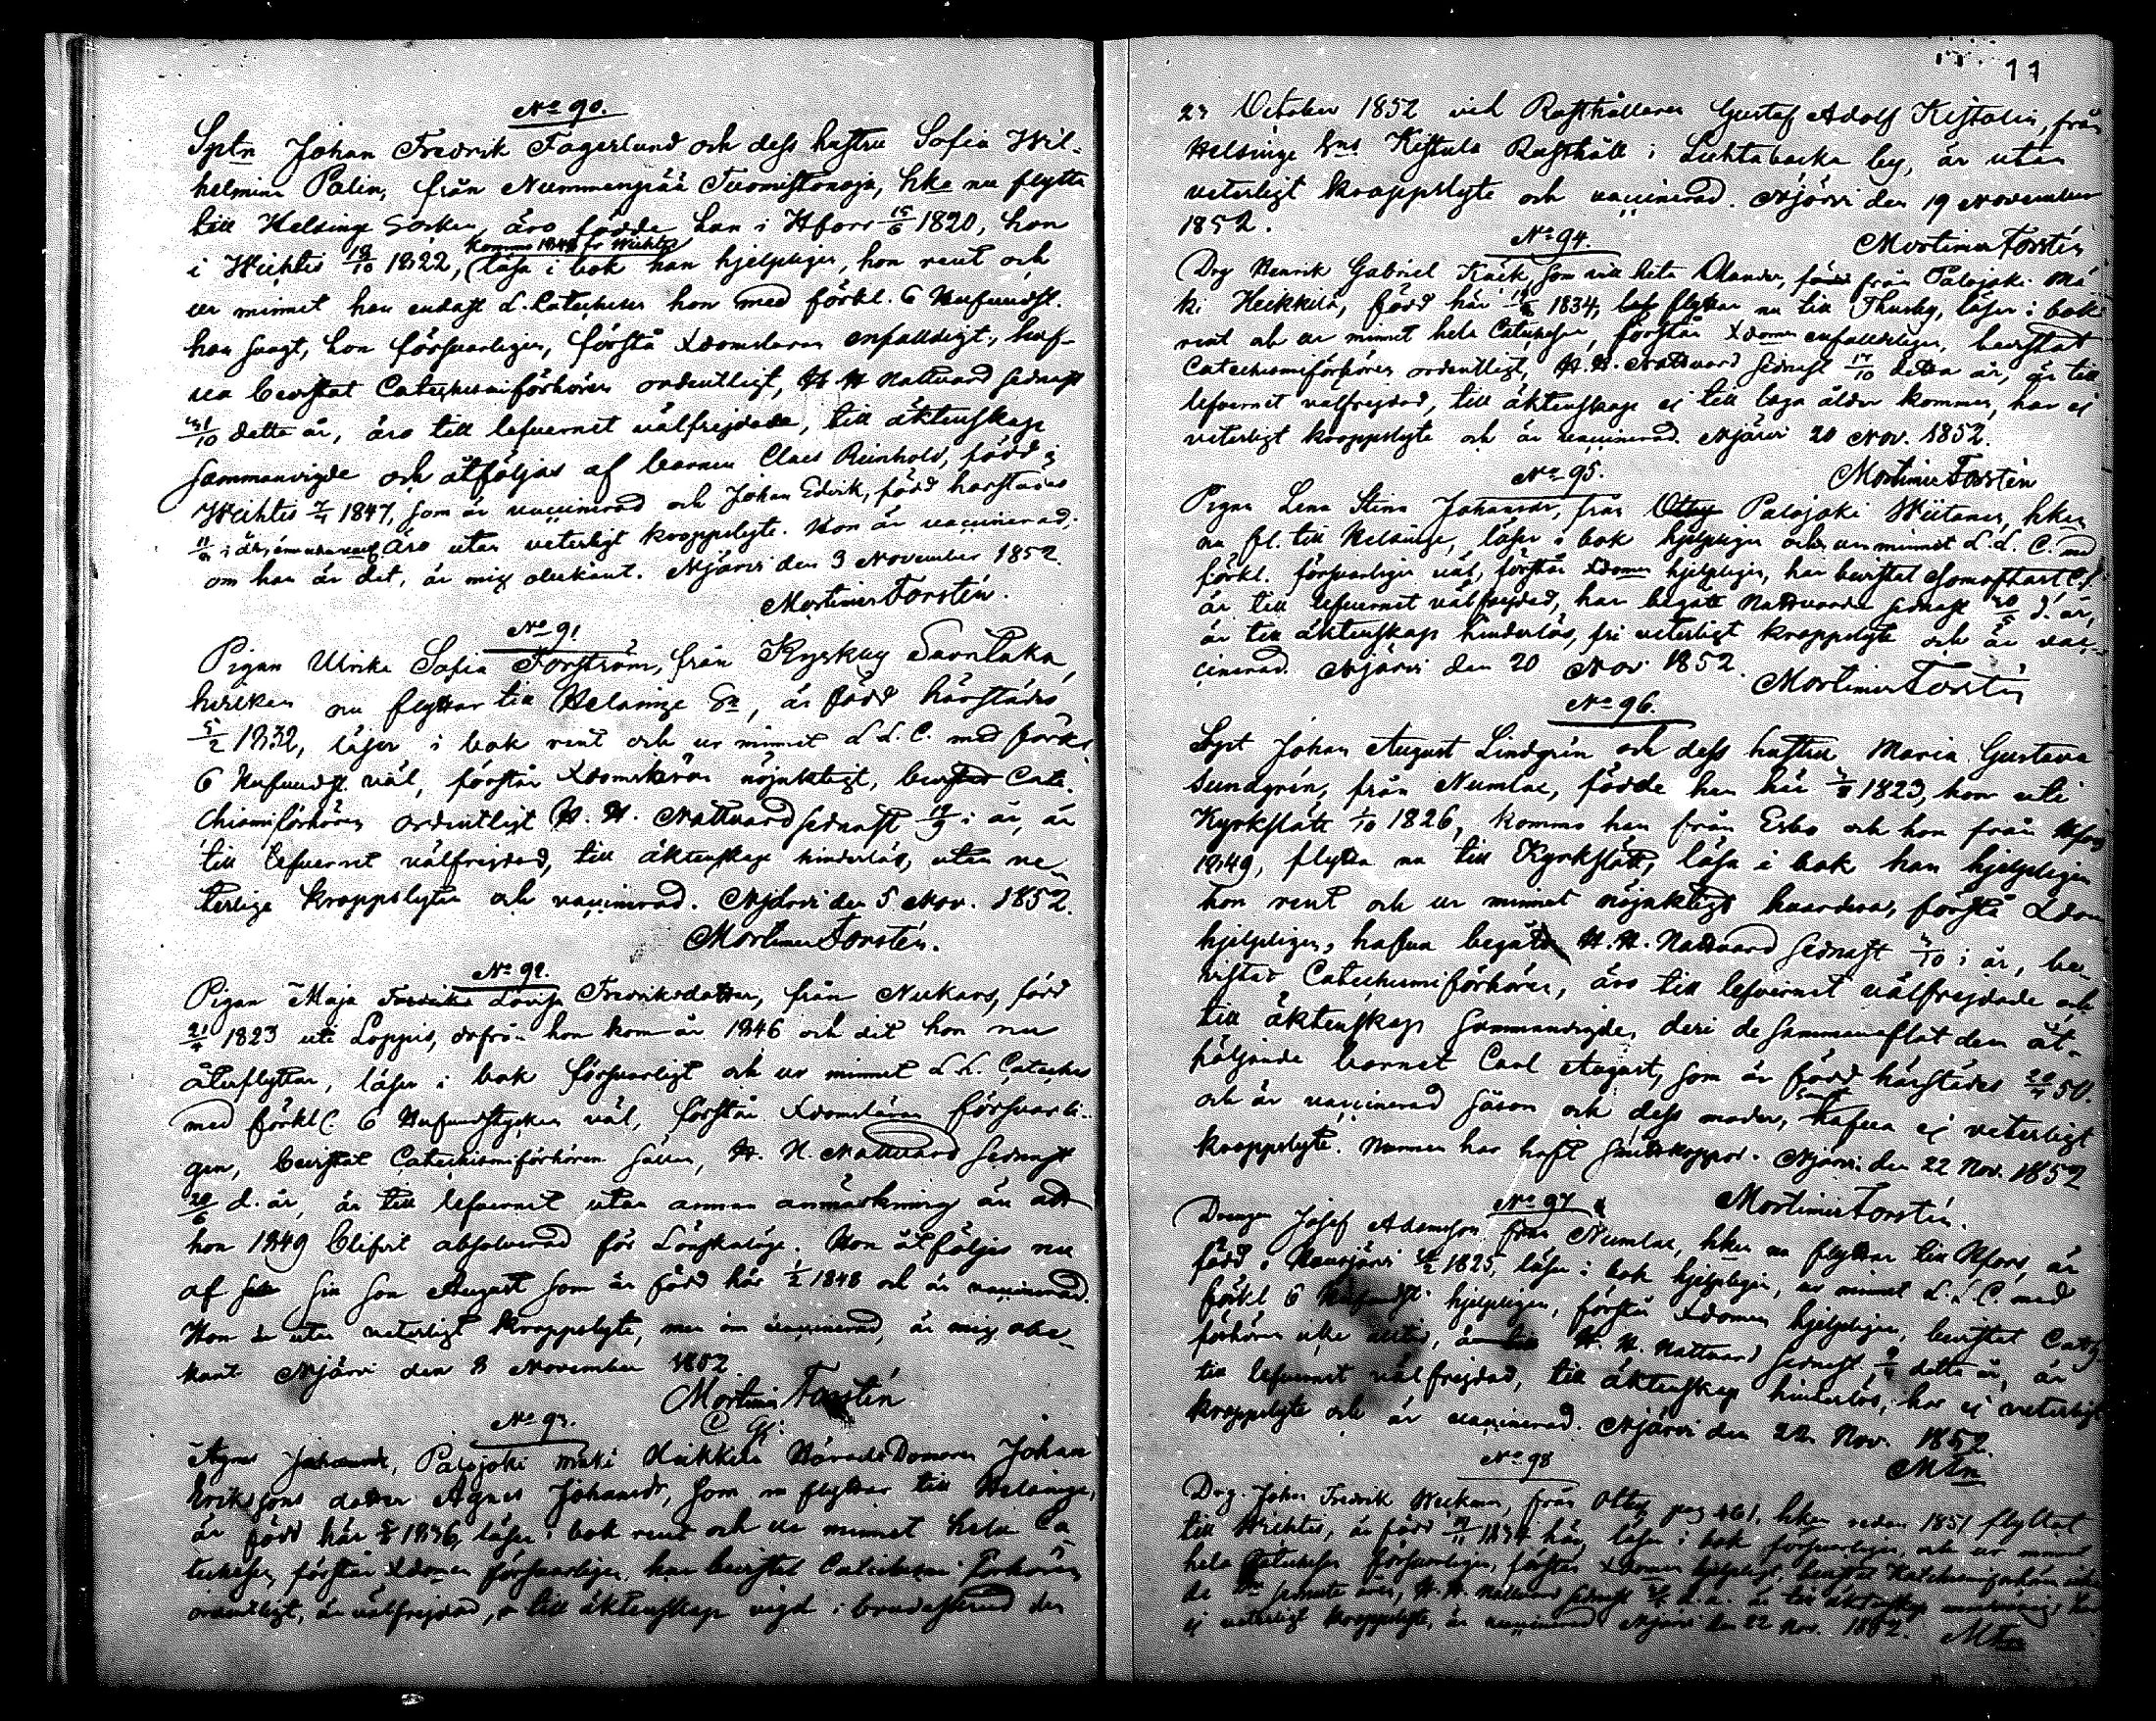 No 90.
Sptn Johan Fredrik Fagerlund och dess hustru Sofia Wil-
helmina Palin, från Nummenpää Tuomistonoja, hka nu flytta
till Helsinge Socken, äro födde han i Hfors 15/6 1820, hon
Komne 1848 fr Wichtis
i Wichtis 18/10 1822, läsa i bok han hjelpligen, hon rent och
ur minnet han endast L. Catechesen hon med förkl. 6 Hufvudst.
han svagt, hon försvarligen, förstå Xdomsläran enfaldigt, haf-
va bevistat Catechismiförhören ordentligt, H. H. Nattvard sednast
31/10 detta år, äro till lefvernet välfrejdade, till äktenskap
sammanvigde och åtföljas af barnen Claes Reinhold, född i
Wichtis 1847, som är vaccinerad och Johan Edvik, född härstädes
i år, äro utan veterligt kroppslyte. Hon är vaccinerad.
om han är det, är mig obekant. Njärvi den 3 November 1852.
Mortimer Forstén.
No 91
Pigan Ulrika Sofia Forström, från Kyrkby Savilaka,
hvilken nu flyttar till Helsinge Sn, är född härstädes
5/2 1832, läser i bok rent och ur minnet L. L. C. med förkl.
6 Hufvudst. väl, förstår Xdomsläran nöjaktigt, bevistat Cate-
chismiförhören ordentligt H. H. Nattvard sednast 19/9 i år, är
till lefvernet välfrejdad, till äktenskap hinderlös, utan ve-
terlige kroppslyten och vaccinerad. Njärvi den 5 Nov. 1852.
Mortimer Forstén.
No 92.
Pigan Maja Lovisa Fredriksdotter, från Nukars, född
21/4 1823 uti Loppis, derifrån hon kom år 1846 och dit hon nu
återflyttar, läser i bok försvarligt och ur minnet L. L. Cateches
med förkl. 6 Hufvudstycken väl, förstår Xdomsläran försvarli-
gen, bevistat Catechismiförhören sällan, H. H. Nattvard sednast
20/6 d. år, är till lefvernet utan annan anmärkning än att
hon 1849 blifvit absolverad för Lönskaläge. Hon åtföljes nu
af sin son August som är född här 1/2 1848 och är vaccinerad.
Hon är utan veterligt kroppslyte, men om vaccinerad, är mig obe-
kant Njärvi den 8 November 1852
Mortimer Forstén
No 93.
Agnes Johansdr, Palojoki Mäki Heikkilä Härads Domaren Johan
Erikssons dotter Agnes Johansdr, som nu flyttar till Helsinge,
är född här 1836, läser i bok rent och ur minnet hela Ca
techesen, förstår Xdomen försvarligen, har bevistat Catechismi förhören
ordentligt, är välfrejdad, till äktenskap vigd i brudestånd den
11
23 October 1852 vid Rusthållaren Gustaf Adolf Kistolin, från
Helsinge Sns Kistula Rusthåll i Luhtabacka by, är utan
veterligt kroppslyte och vaccinerad. Njärvi den 19 November
1852.
Mortimer Forstén
No 94.
Drg Henrik Gabriel Träsk, som vill heta Olander, från Palojoki Mä
ki Heikkilä, född här 1834, flyttar nu till Thusby, läser i bok
rent och ur minnet hela Catechesen, förstår Xdomen enfaldeligen, bevistat
Catechismiförhören ordentligt, H. H. Nattvard sednast 17/10 detta år, är till
lefvernet välfrejdad, till äktenskap ej till laga ålder kommen, har ej
veterligt kroppslyte och är vaccinerad. Njärvi 20 Nov. 1852.
Mortimer Forstén
No 95.
Pigan Lena Stina Johansdr, från Palojoki Wiitanen, hken
nu fl. till Helsinge, läser i bok hjelpligen och ur minnet L. L. C. med
förkl. försvarligen väl, förstår Xdomen hjelpligen, har bevistat som oftast C. f.
är till lefvernet välfrejdad, har begått Nattvarden sednast d. år,
är till äktenskap hinderlös, fri veterligt kroppslyte och är vac-
cinerad. Njärvi den 20 Nov 1852.
Mortimer Forstén
No 96.
Spst Johan August Lindgrén och dess hustru Maria Gustava
Sundgrén, från Numlax, födde han här 1823, hon uti
Kyrkslätt 1/10 1826, komne han från Esbo och hon från Hfors
1849, flytta nu till Kyrkslätt, läsa i bok han hjelpligen
hon rent och ur minnet nöjaktigt hvardera, förstå Xdom
hjelpligen, hafva begått H. H. Nattvard sednast 3/10 i år, be-
vistat Catechismiförhören, äro till lefvernet välfrejdade och
till äktenskap sammanvigde, deri de sammanaflat den åt-
följande barnet Carl August, som är född härstädes 20/4 50.
och är vaccinerad såsom och dess moder, hafva ej veterligt
kroppslyte. Mannen har haft smittkoppor. Njärvi den 22 Nov. 1852
Mortimer Forstén.
No 97
Drängen Josef Adamsson från Numlax, hken nu flyttar till Hfors, är
född i Hausjärvi 1825, läser i bok hjelpligen, ur minnet L. L. C. med
förkl. 6 Hufvudst. hjelpligen, förstår Xdomen hjelpligen, bevistat Catz
förhören icke alltid, H. H. Nattvard sednast detta år, är
till lefvernet välfrejdad, till äktenskap hinderlös, har ej veterligt
kroppslyte och är vaccinerad. Njärvi den 22 Nov. 1852.
MFn
No 98
Drg. Johan Fredrik Weckman, från Ottby pag 461, hken redan 1851 flyttat
till Wichtis, är född 1834 här, läser i bok försvarligen och ur minnet
hela Catechesen försvarligen, förstår Xdomen hjelpligt, bevistat Katechismiförhören
de sednaste åren, H. H. Nattvard sednast d. å. är till äktenskap
ej veterligt kroppslyte, är vaccinerad Njärvi den 22 Nov. 1852.
MFn